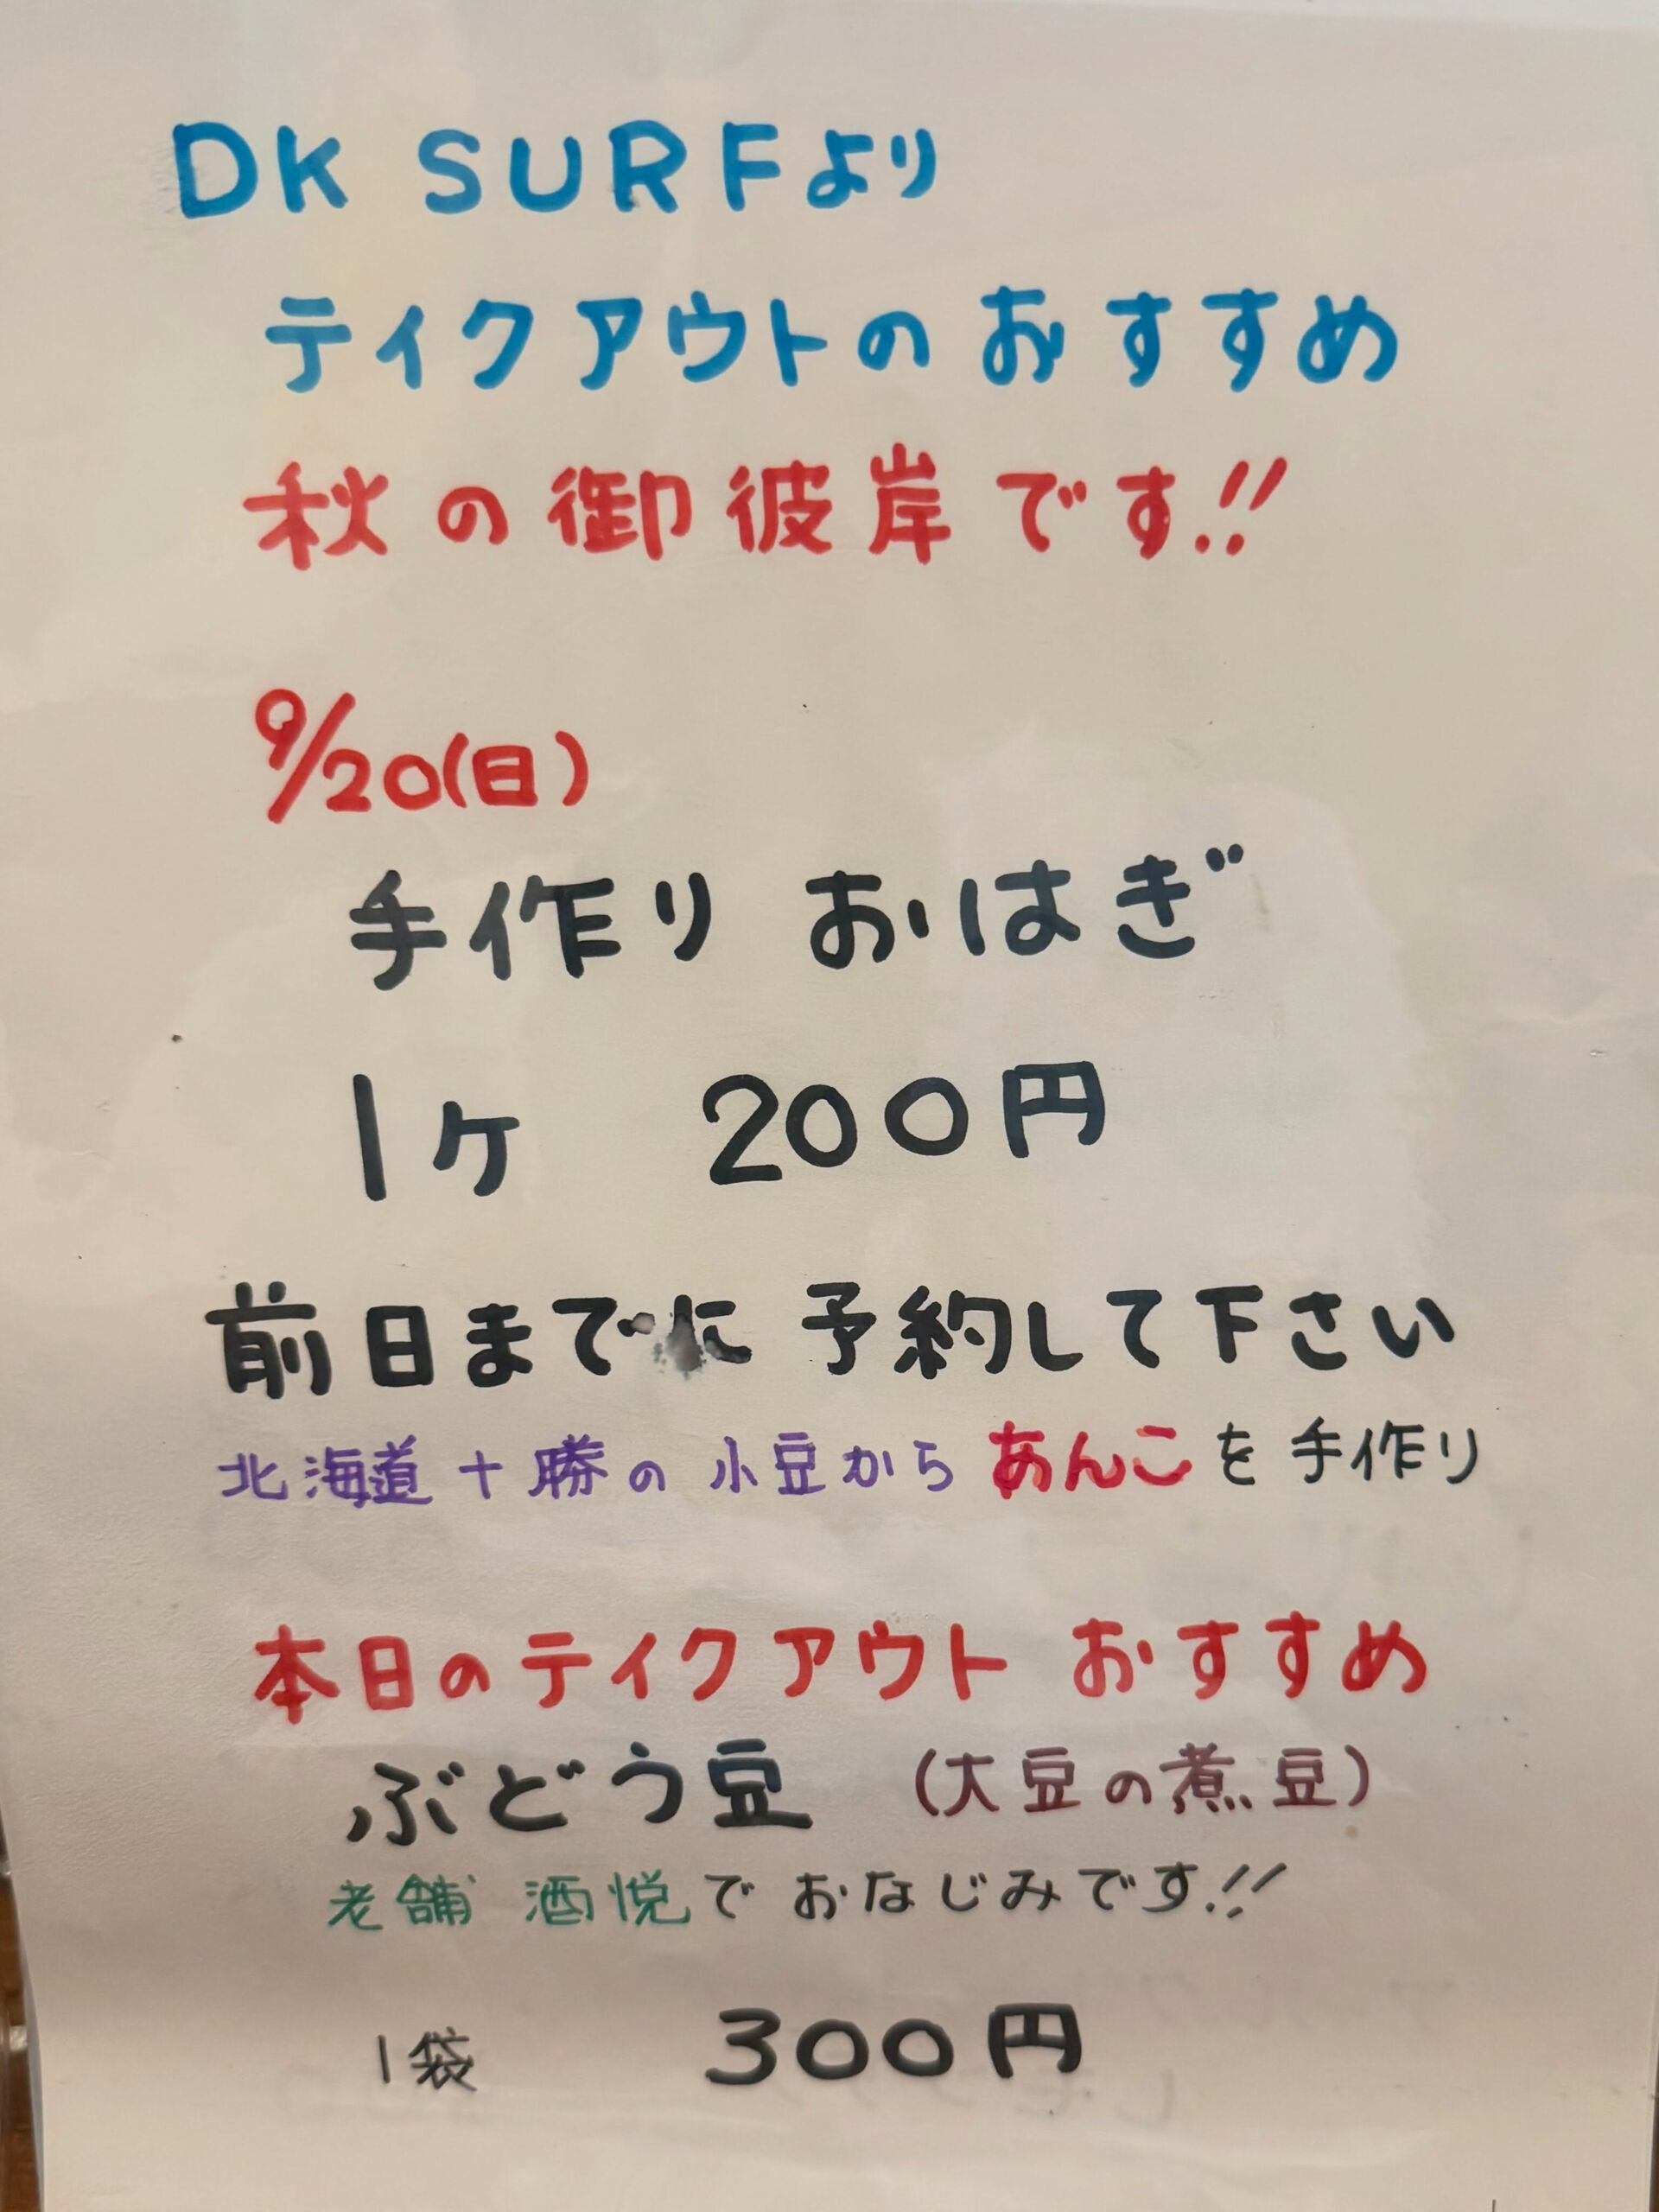 DK SURFより
テイクアウトのおすすめ
秋の御彼岸です!!
9/20(日)
手作り おはぎ
1ヶ 200円
前日までに 予約して下さい
北海道十勝の小豆からあんこを手作り
本日のテイクアウト おすすめ
ぶどう豆 (大豆の煮豆)
老舗 酒悦でおなじみです!!
1袋 300円